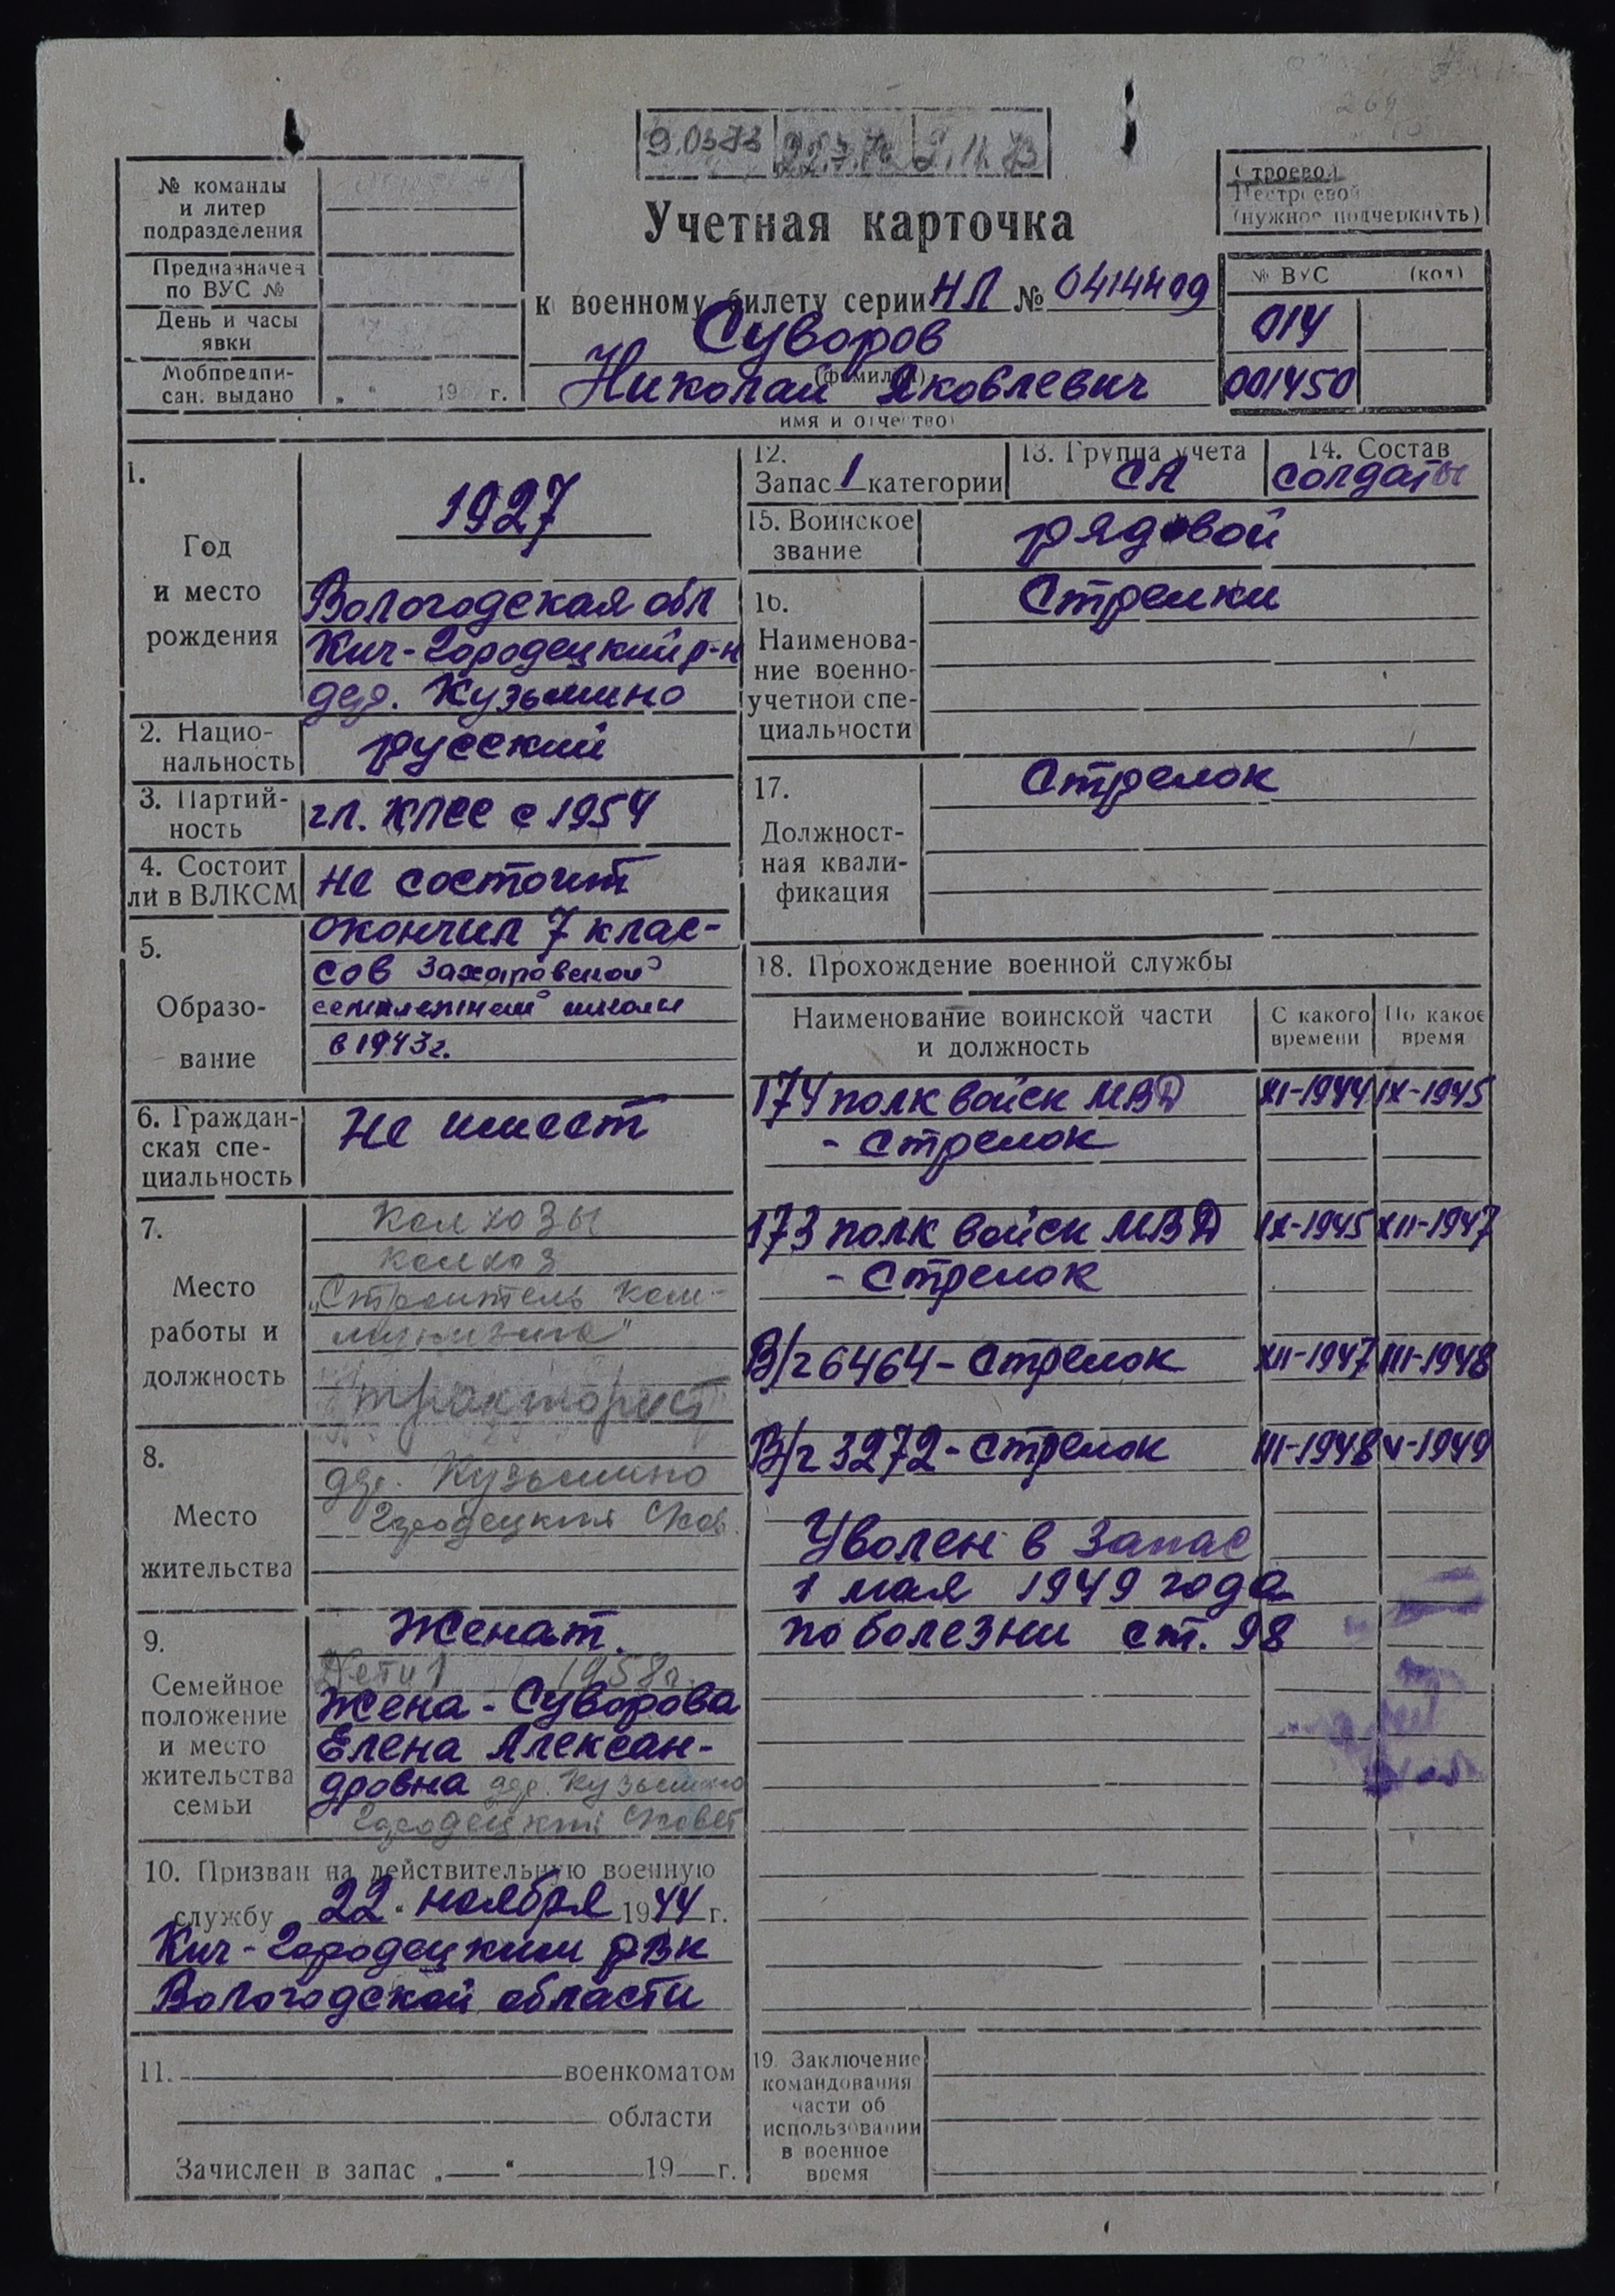 9.03.73 22.7.72 2.11.73
Строевой
Нестроевой
(нужное подчеркнуть)
№ команды
и литер
подразделения
Предназначен
по ВУС №
День и часы
явки
Мобпредпи-
сан. выдано „ “ 19 г.
Учетная карточка
к военному билету серии НЛ № 0414409
Суворов
(фамилия)
Николай Яковлевич
имя и отчество)
№ ВУС (код)
014
001450
1.
Год
и место
рождения
1927
Вологодская обл
Кич-Городецкий р-н
дер. Кузьмино
2. Нацио-
нальность
русский
3. Партий-
ность
чл. КПСС с 1954
4. Состоит
ли в ВЛКСМ
не состоит
5.
Образо-
вание
окончил 7 клас-
сов Захаровской
семилетней школы
в 1943г.
6. Граждан-
ская спе-
циальность
Не имеет
7.
Место
работы и
должность
Колхозы
колхоз
„Строитель ком-
мунизма"
тракторист
8.
Место
жительства
дер. Кузьмино
Городецкий с/сов.
9.
Семейное
положение
и место
жительства
семьи
Женат.
Дети 1 1958г
Жена - Суворова
Елена Алексан-
дровна дер. Кузьмино
Городецкий с/совет
10. Призван на действительную военную
службу 22 " ноября 1944 г.
Кич-Городецким РВК
Вологодской области
11. военкоматом
области
Зачислен в запас „ “ 19 г.
12.
Запас 1 категории
13. Группа учета
СА
14. Состав
солдаты
15. Воинское
звание
рядовой
16.
Наименова-
ние военно-
учетной спе-
циальности
Стрелки
17.
Должност-
ная квали-
фикация
Стрелок
18. Прохождение военной службы
Наименование воинской части
и должность
С какого
времени
По какое
время
174 полк войск МВД XI-1944 IX-1945
- стрелок
173 полк войск МВД IX-1945 XII-1947
- стрелок
В/ч 6464 - стрелок XII-1947 III-1948
В/ч 3272 - стрелок III-1948 V-1949
Уволен в запас
1 мая 1949 года
по болезни ст. 98
19. Заключение
командования
части об
использовании
в военное
время